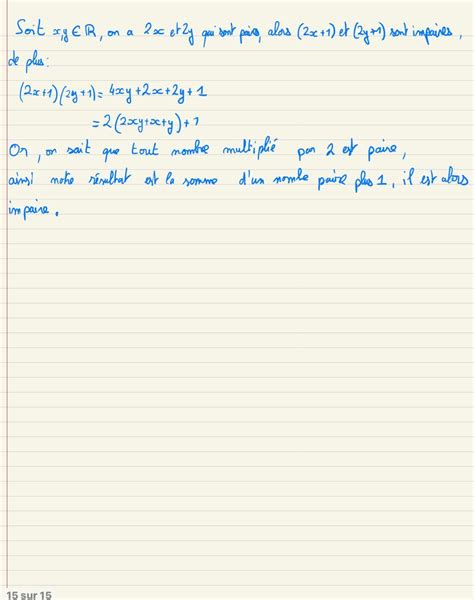 Soit x,y ∈ ℝ, on a 2x et 2y qui sont pairs, alors (2x+1) et (2y+1) sont impaires,
de plus :
(2x+1)(2y+1) = 4xy + 2x + 2y + 1
= 2(2xy+x+y) + 1
Or, on sait que tout nombre multiplié par 2 est paire,
ainsi notre résultat est la somme d'un nombre paire plus 1, il est alors
impaire.
15 sur 15